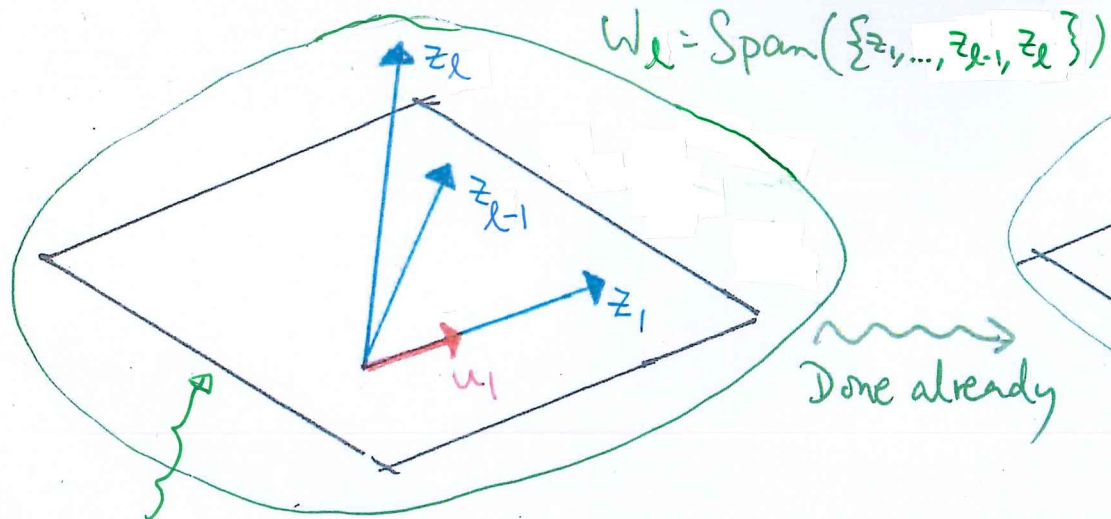 W_ℓ = Span({z_1, ..., z_{ℓ-1}, z_ℓ})
z_ℓ
z_{ℓ-1}
z_1
u_1
Done already